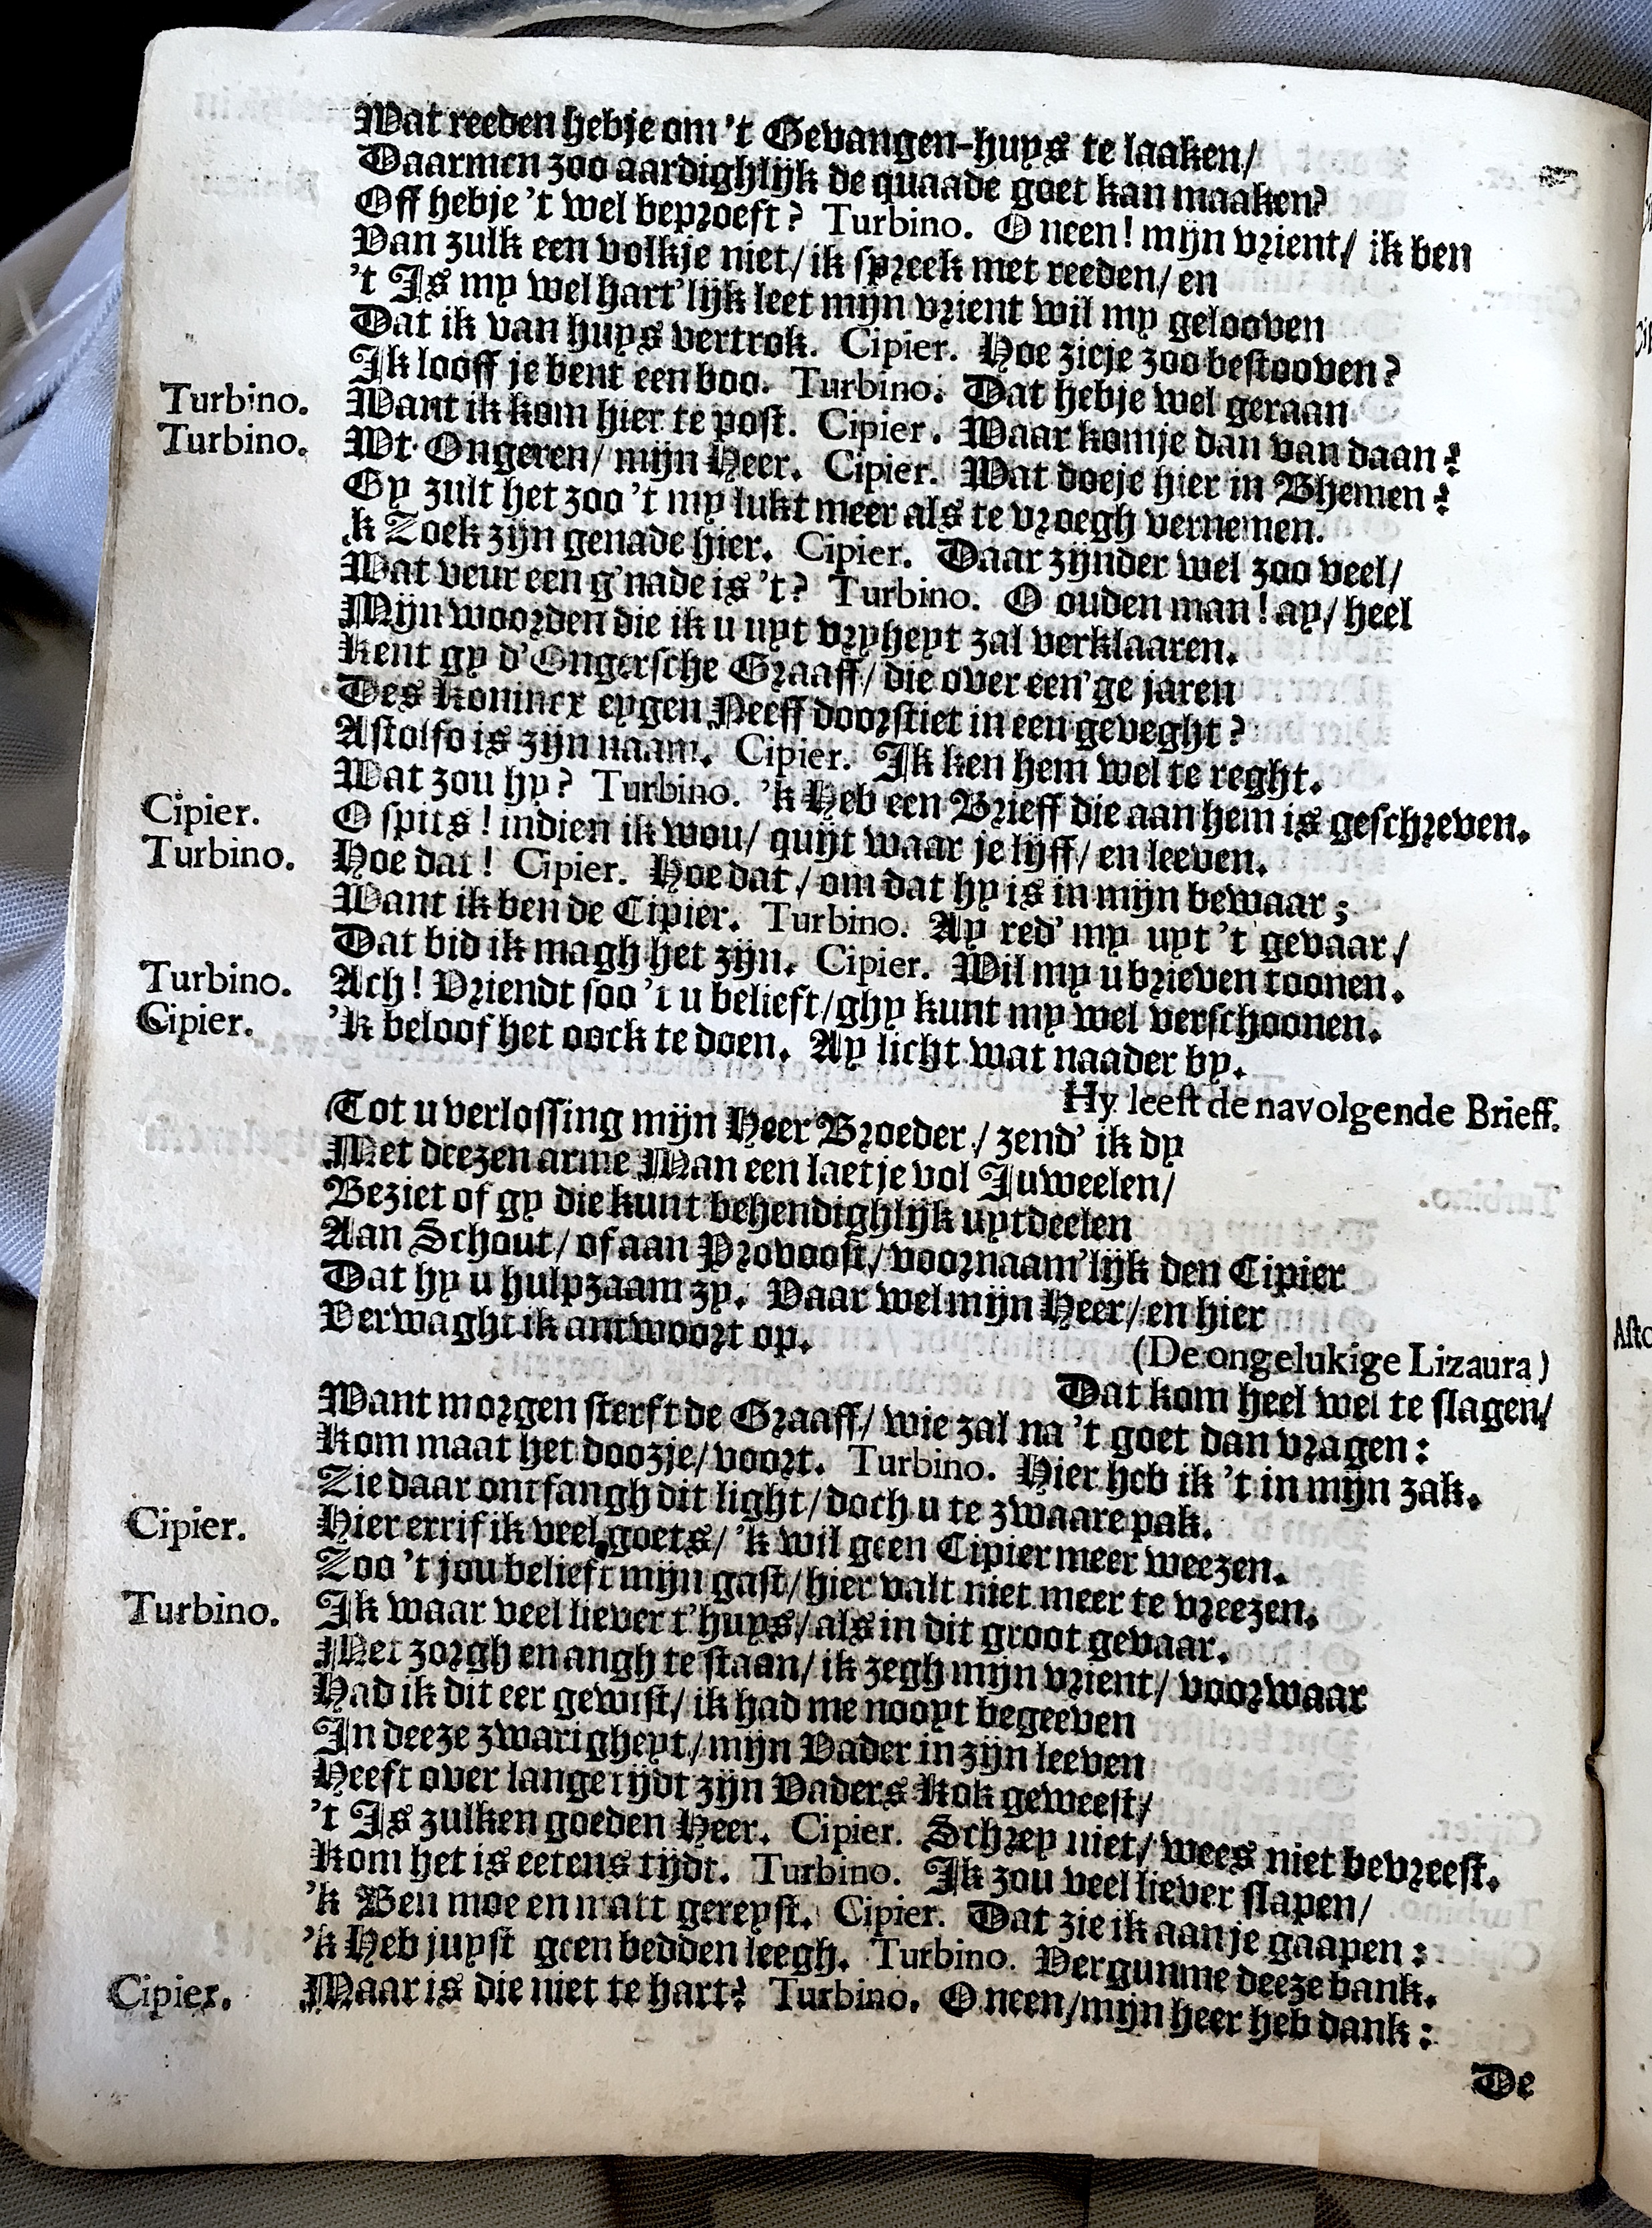 Wat reeden hebje om 't Gevangen-huys te laaken/
Daarmen zoo aardighlijk de quaade goet kan maaken?
Off hebje 't wel beproeft? Turbino. O neen! mijn vrient/ ik ben
Van zulk een volkje niet/ ik spreek met reeden/ en
't Is my wel hart'lijk leet mijn vrient wil my gelooven
Dat ik van huys vertrok. Cipier. Hoe zieje zoo bestooven?
Ik looff je bent een boo. Turbino. Dat hebje wel geraan
Turbino. Want ik kom hier te post. Cipier. Waar komje dan van daan?
Turbino. Wt Ongeren/ mijn Heer. Cipier. Wat doeje hier in Bhemen?
Gy zult het zoo 't my lukt meer als te vroegh vernemen.
'k Zoek zijn genade hier. Cipier. Daar zijnder wel zoo veel/
Wat veur een g'nade is 't? Turbino. O ouden man! ay/ heel
Mijn woorden die ik u uyt vryheyt zal verklaaren.
Kent gy d'Ongersche Graaff/ die over een'ge jaren
Des Koninex eygen Neeff doorstiet in een geveght?
Astolfo is zijn naam. Cipier. Ik ken hem wel te reght.
Wat zou hy? Turbino. 'k Heb een Brieff die aan hem is geschreven.
Cipier. O spits! indien ik wou/ quijt waar je lijff/ en leeven.
Turbino. Hoe dat! Cipier. Hoe dat/ om dat hy is in mijn bewaar;
Want ik ben de Cipier. Turbino. Ay red' my uyt 't gevaar/
Dat bid ik magh het zijn. Cipier. Wil my u brieven toonen.
Turbino. Ach! Vriendt soo 't u belieft/ ghy kunt my wel verschoonen.
Cipier. 'K beloof het oock te doen. Ay licht wat naader by.
Hy leest de navolgende Brieff.
Tot u verlossing mijn Heer Broeder/ zend' ik dy
Met deezen arme Man een laetje vol Juweelen/
Beziet of gy die kunt behendighlijk uytdeelen
Aan Schout/ of aan Provoost/ voornaam'lijk den Cipier
Dat hy u hulpzaam zy. Vaar wel mijn Heer/ en hier
Verwaght ik antwoort op.
(De ongelukige Lizaura)
Dat kom heel wel te slagen/
Want morgen sterft de Graaff/ wie zal na 't goet dan vragen:
Kom maat het doozje/ voort. Turbino. Hier heb ik 't in mijn zak.
Zie daar ontfangh dit light/ doch u te zwaare pak.
Cipier. Hier errif ik veel goets/ 'k wil geen Cipier meer weezen.
Zoo 't jou belieft mijn gast/ hier valt niet meer te vreezen.
Turbino. Ik waar veel liever t'huys/ als in dit groot gevaar.
Met zorgh en angh te staan/ ik zegh mijn vrient/ voorwaar
Had ik dit eer gewist/ ik had me nooyt begeeven
In deeze zwarigheyt/ mijn Vader in zijn leeven
Heeft over lange tijdt zijn Vaders Kok geweest/
't Is zulken goeden Heer. Cipier. Schrey niet/ wees niet bevreest.
Kom het is eetens tijdt. Turbino. Ik zou veel liever slapen/
'k Ben moe en matt gereyst. Cipier. Dat zie ik aan je gaapen:
'k Heb juyst geen bedden leegh. Turbino. Vergunme deeze bank.
Cipier. Maar is die niet te hart? Turbino. O neen/ mijn heer heb dank:
De